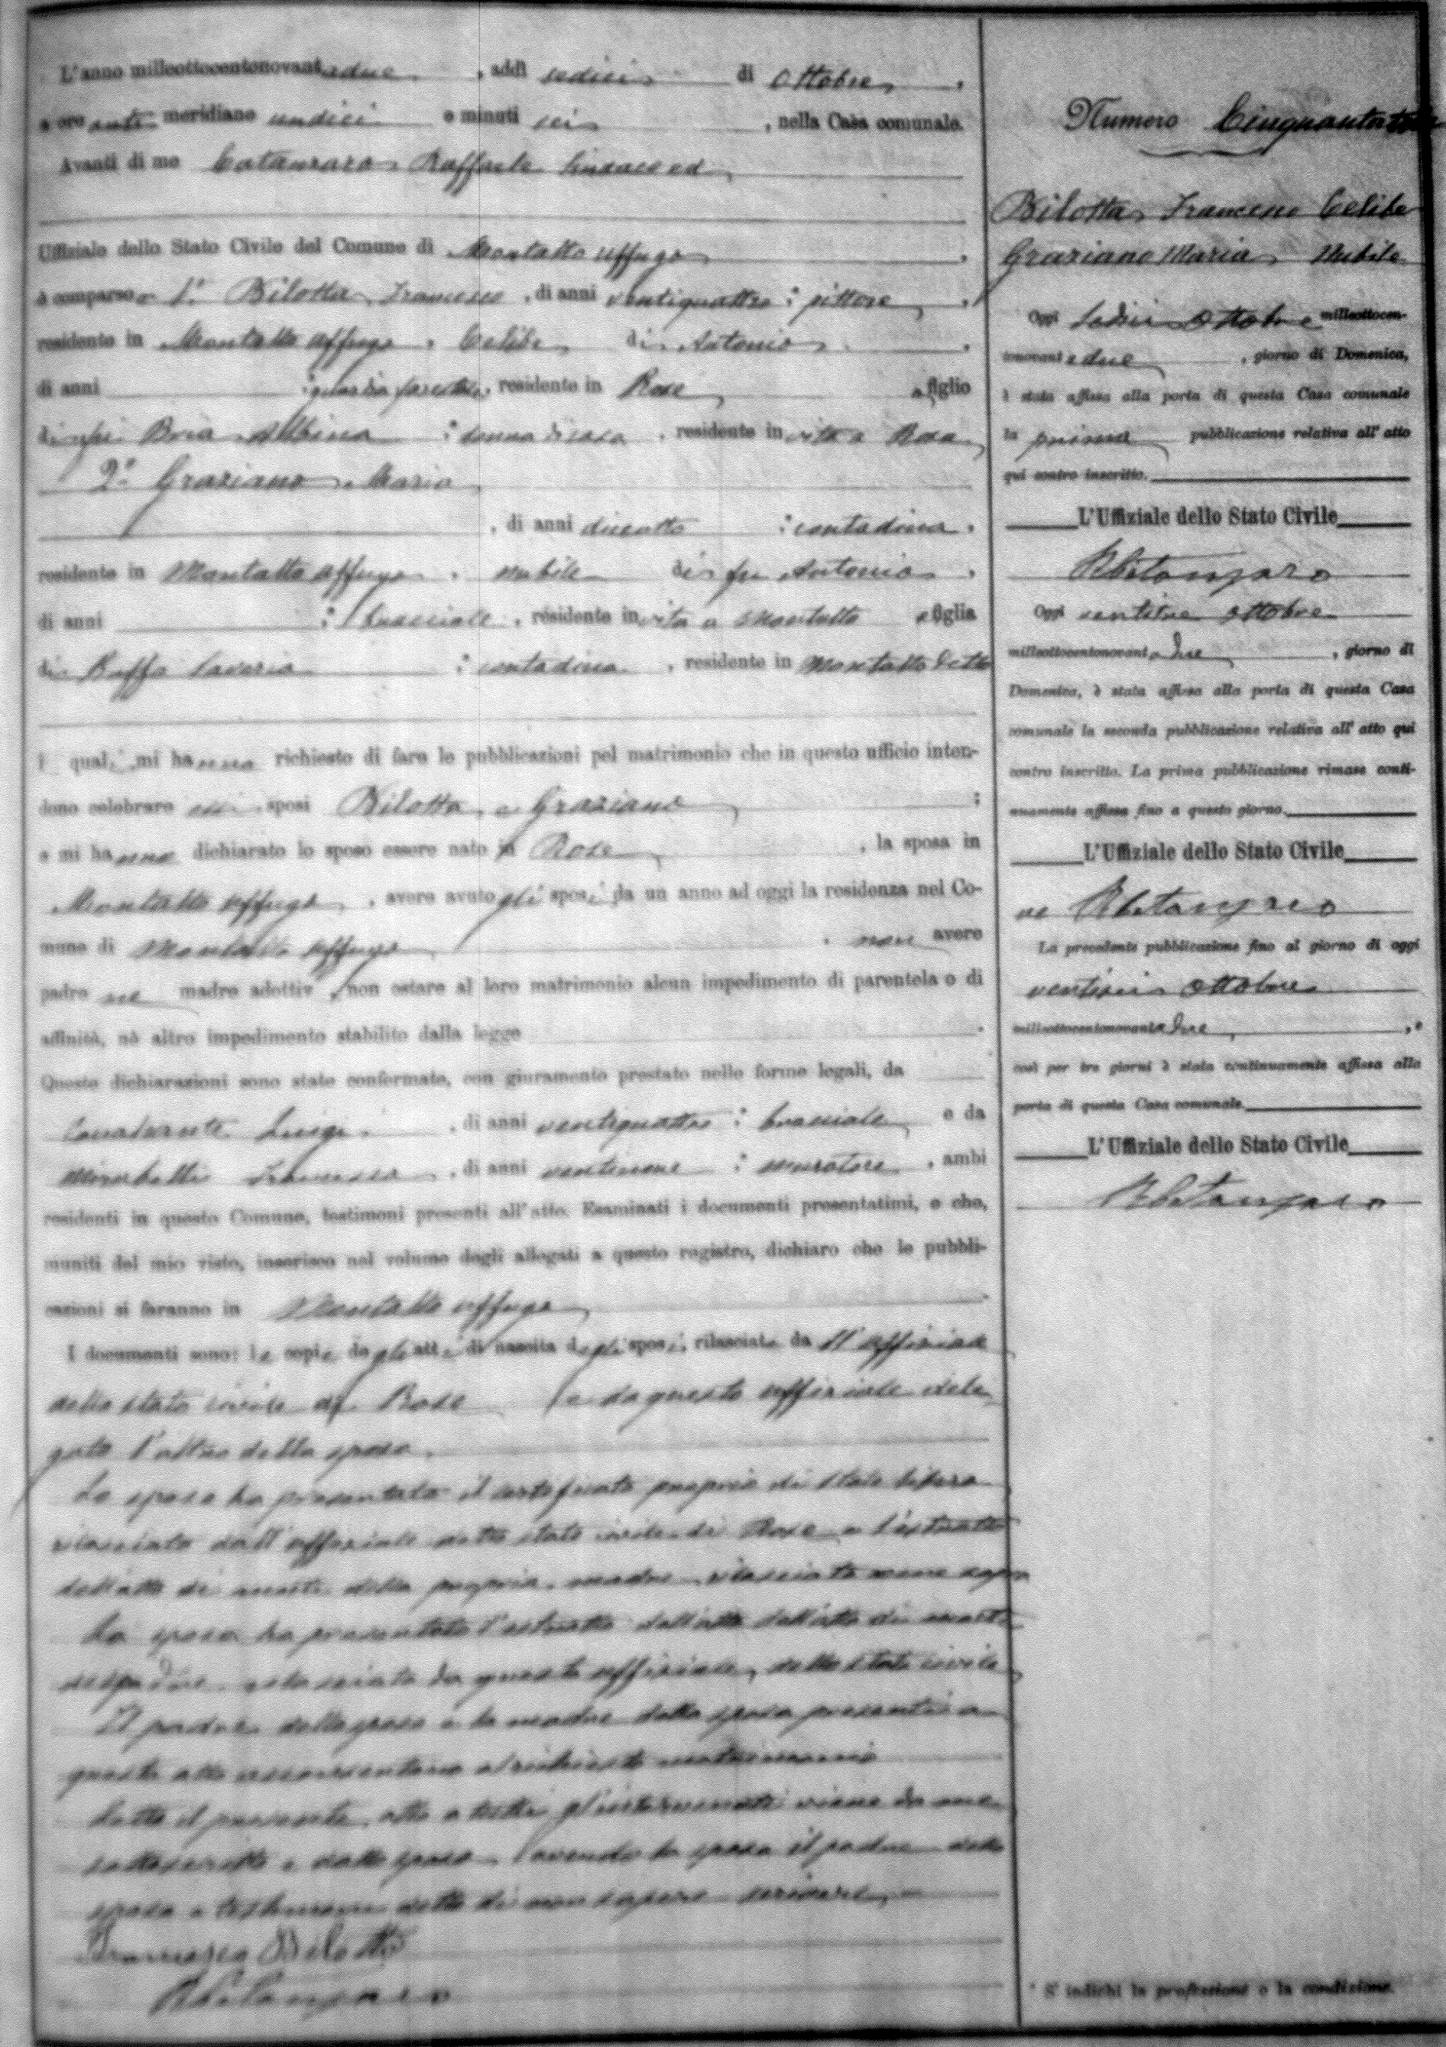 L'anno millecottocentonovantadue, addì sedici di Ottobre,
a ore anti meridiane undici e minuti sei, nella Casa comunale.
Avanti di me Catanzaro Raffaele Sindaco ed
Uffiziale dello Stato Civile del Comune di Montalto Uffugo,
è comparso 1° Bilotta Francesco, di anni ventiquattro; pittore,
residente in Montalto Uffugo, Celibe di Antonio,
di anni ; guardia forestale, residente in Rose, figlio
di fu Bria Albina; donna di casa, residente in vita a Rose
2° Graziano Maria
, di anni dieciotto; contadina,
residente in Montalto Uffugo, nubile di fu Antonio,
di anni ; bracciale, residente in vita a Montalto, figlia
di Ruffo Saveria; contadina, residente in Montalto detto
i quali mi hanno richiesto di fare le pubblicazioni pel matrimonio che in questo ufficio inten-
dono celebrare essi sposi Bilotta e Graziano;
e mi hanno dichiarato lo sposo essere nato in Rose, la sposa in
Montalto Uffugo, avere avuto gli sposi da un anno ad oggi la residenza nel Co-
mune di Montalto Uffugo, non avere
padre nè madre adottiv, non ostare al loro matrimonio alcun impedimento di parentela o di
affinità, nè altro impedimento stabilito dalla legge.
Queste dichiarazioni sono state confermate, con giuramento prestato nelle forme legali, da
Luigi, di anni ventiquattro; bracciale, e da
Mirabelli Francesco, di anni ventinove; muratore, ambi
residenti in questo Comune, testimoni presenti all'atto. Esaminati i documenti presentatimi, e che,
muniti del mio visto, inserisco nel volume degli allegati a questo registro, dichiaro che le pubbli-
cazioni si faranno in Montalto Uffugo.
I documenti sono: le copie degli atti di nascita degli sposi, rilasciate da ll'uffiziale
dello stato civile di Rose e da questo uffiziale dele
gato l'altra della sposa.
Lo sposo ha presentato il certificato proprio di stato libero
rilasciato dall'uffiziale dello stato civile di Rose e l'estratto
dell'atto di morte della propria madre rilasciato come sopra
La sposa ha presentato l'estratto dell'atto dell'atto di morte
del padre rilasciato da questo uffiziale dello stato civile
Il padre dello sposo e la madre della sposa presenti a
questo atto acconsentono al richiesto matrimonio
Letto il presente atto a tutti gl'intervenuti viene da me
sottoscritto e dallo sposo avendo la sposa il padre dello
sposo e testimoni detto di non sapere scrivere.
Francesco Bilotta
RCatanzaro
Numero Cinquanta
Bilotta Francesco Celibe
Graziano Maria Nubile
Oggi sedici Ottobre milleottocen-
tonovantadue, giorno di Domenica,
è stata affissa alla porta di questa Casa comunale
la prima pubblicazione relativa all'atto
qui contro inscritto.
L'Uffiziale dello Stato Civile
RCatanzaro
Oggi ventitre Ottobre
milleottocentonovantadue, giorno di
Domenica, è stata affissa alla porta di questa Casa
comunale la seconda pubblicazione relativa all'atto qui
contro inscritto. La prima pubblicazione rimase conti-
nuamente affissa fino a questo giorno.
L'Uffiziale dello Stato Civile
RCatanzaro
La precedente pubblicazione fino al giorno di oggi
ventisei Ottobre
milleottocentonovantadue, e
così per tre giorni è stata continuamente affissa alla
porta di questa Casa comunale.
L'Uffiziale dello Stato Civile
RCatanzaro
* S'indichi la professione o la condizione.